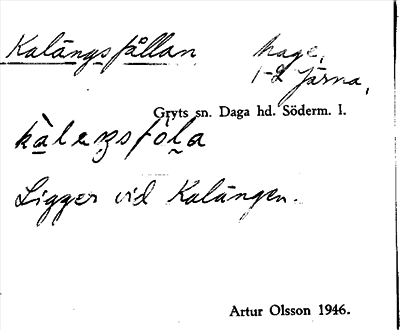 Kalängsfållan hage,
1-2 Järna,
Gryts sn. Daga hd. Söderm. l.
Ligger vid Kalängen.
Artur Olsson 1946.